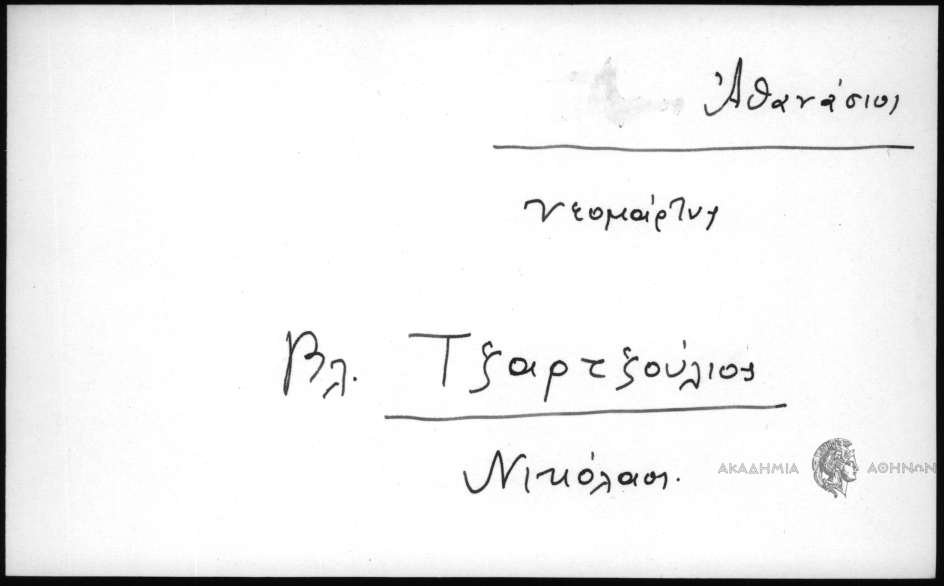 Ἀθανάσιος
νεομάρτυς
Βλ. Τζαρτζούλιος
Νικόλαος.
ΑΚΑΔΗΜΙΑ ΑΘΗΝΩΝ